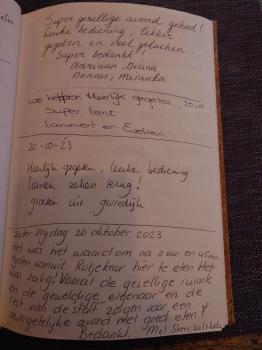 Super gezellige avond gehad!
leuke bediening, lekker
gegeten en veel gelachen.
Super bedankt,
Adriaan, Diana
Dennis, Miranka
we heerlijk gegeten, 20-10
Super tent
Lammert en
20-10-23
Heerlijk gegeten, leuke bediening
komen zeker terug!
groeten uit gorredijk
vrijdag 20 oktober 2023
Het was het waard om na 2 uur en 45 min
vanuit hier te eten Het
was zalig! Vooral de gezellige ruimte
en de geweldige eigenaar en de
rest van de staff zorgen voor een
onvergetelijke avond met goed eten
Bedankt, Mel